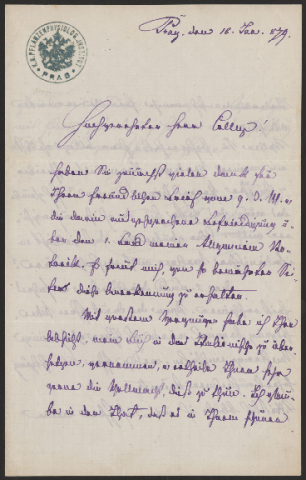 K.K. PFLANZENPHYSIOLOG. INSTITUT PRAG
Prag, den 16. Jan. 879.
Hochverehrter Herr College!
Haben Sie zunächst vielen Dank für
Ihren freundlichen Brief vom 9. d. M. u.
die darin ausgesprochene Befriedigung ü-
ber den 1. Band meiner
. Es freut mich, von so bewährter Sei-
te diese Anerkennung zu erhalten.
Mit grossem Vergnügen habe ich Ihre
Absicht, mein Buch in das Italienische zu über-
setzen, vernommen, u. ertheile Ihnen sehr
gerne die Vollmacht, diess zu thun. Ich glau-
be in der That, dass es in Ihrem schönen